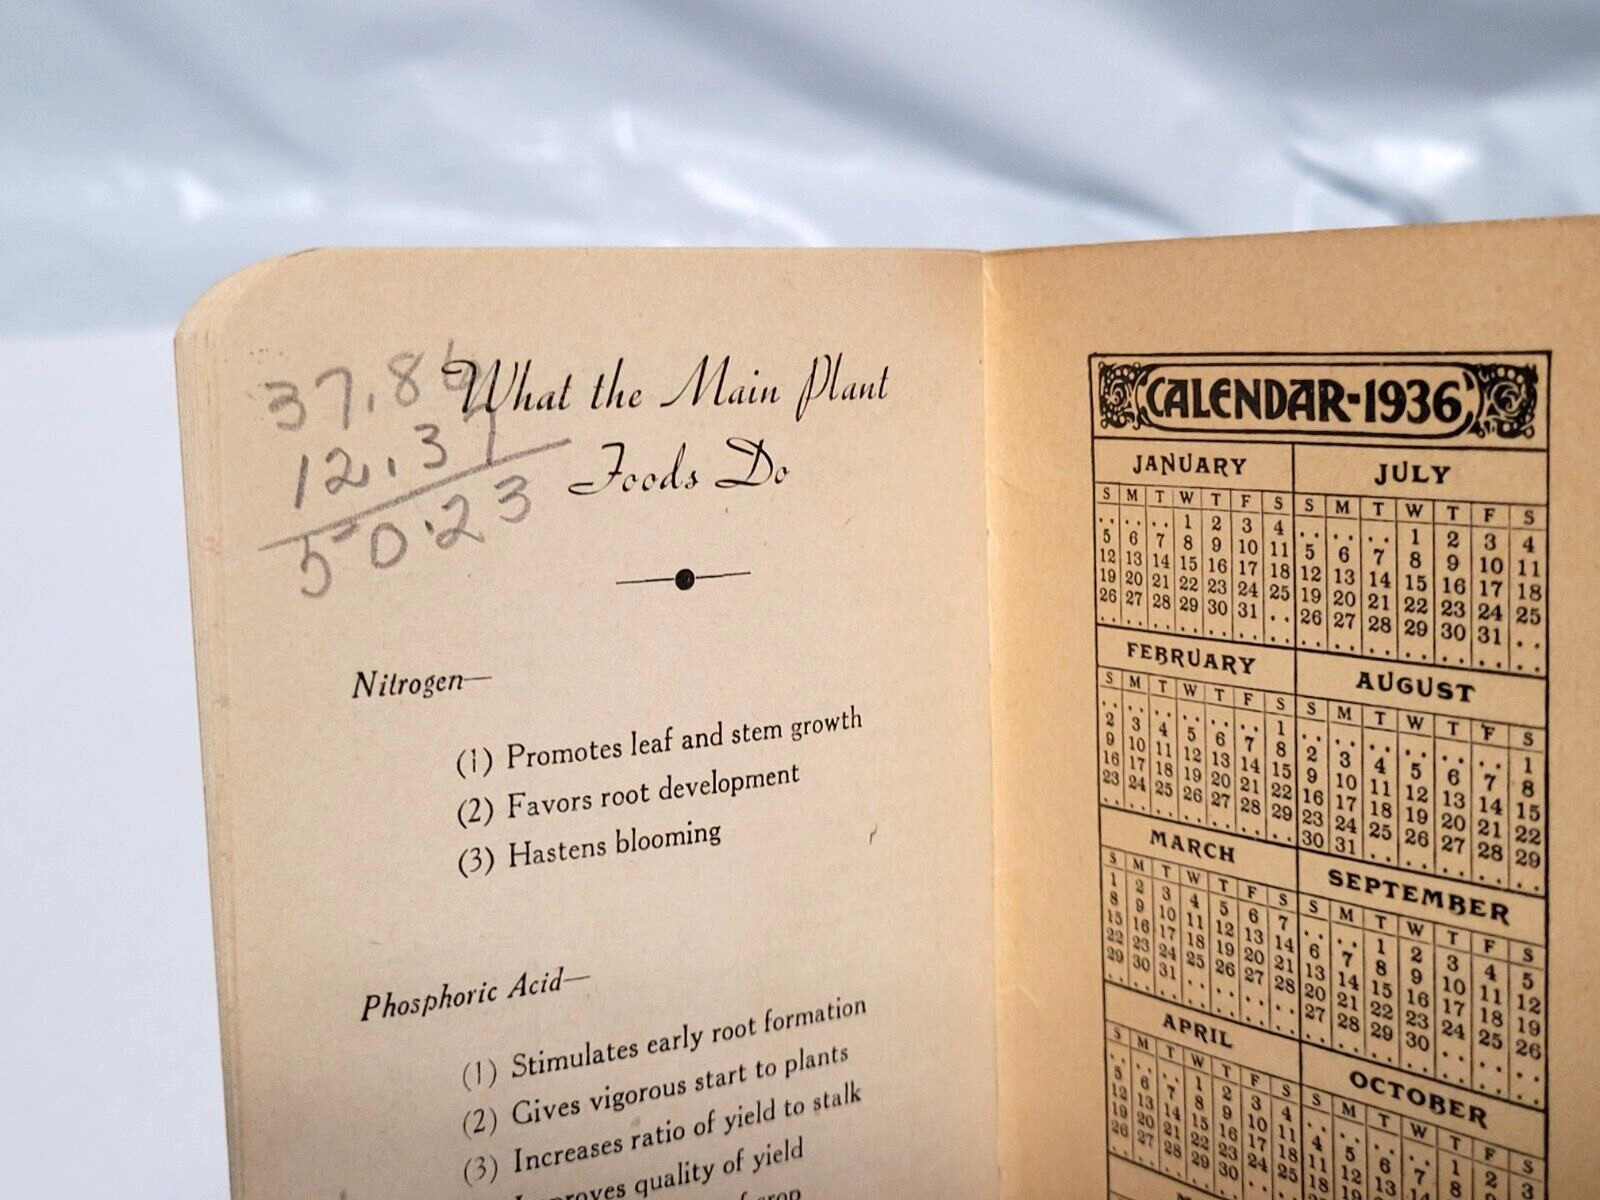 37.86
12.37
50.23
What the Main Plant
Foods Do
Nitrogen—
(1) Promotes leaf and stem growth
(2) Favors root development
(3) Hastens blooming
Phosphoric Acid—
(1) Stimulates early root formation
(2) Gives vigorous start to plants
(3) Increases ratio of yield to stalk
quality of yield
CALENDAR-1936
JANUARY
S M T W T F S
. . . . . . 1 2 3 4
5 6 7 8 9 10 11
12 13 14 15 16 17 18
19 20 21 22 23 24 25
26 27 28 29 30 31 . .
. . . . . . . . . . . . . .
FEBRUARY
S M T W T F S
. . . . . . . . . . . . 1
2 3 4 5 6 7 8
9 10 11 12 13 14 15
16 17 18 19 20 21 22
23 24 25 26 27 28 29
. . . . . . . . . . . . . .
MARCH
S M T W T F S
1 2 3 4 5 6 7
8 9 10 11 12 13 14
15 16 17 18 19 20 21
22 23 24 25 26 27 28
29 30 31 . . . . . . . .
. . . . . . . . . . . . . .
APRIL
S M T W T F S
. . . . . . 1 2 3 4
5 6 7 8 9 10 11
12 13 14 15 16 17 18
19 20 21 22 23 24 25
26 27 28 29 30
JULY
S M T W T F S
. . . . . . 1 2 3 4
5 6 7 8 9 10 11
12 13 14 15 16 17 18
19 20 21 22 23 24 25
26 27 28 29 30 31 . .
. . . . . . . . . . . . . .
AUGUST
S M T W T F S
. . . . . . . . . . . . 1
2 3 4 5 6 7 8
9 10 11 12 13 14 15
16 17 18 19 20 21 22
23 24 25 26 27 28 29
30 31 . . . . . . . . . .
SEPTEMBER
S M T W T F S
. . . . 1 2 3 4 5
6 7 8 9 10 11 12
13 14 15 16 17 18 19
20 21 22 23 24 25 26
27 28 29 30 . . . . . .
. . . . . . . . . . . . . .
OCTOBER
S M T W T F S
. . . . . . . . 1 2 3
4 5 6 7 8
11 12 13 14